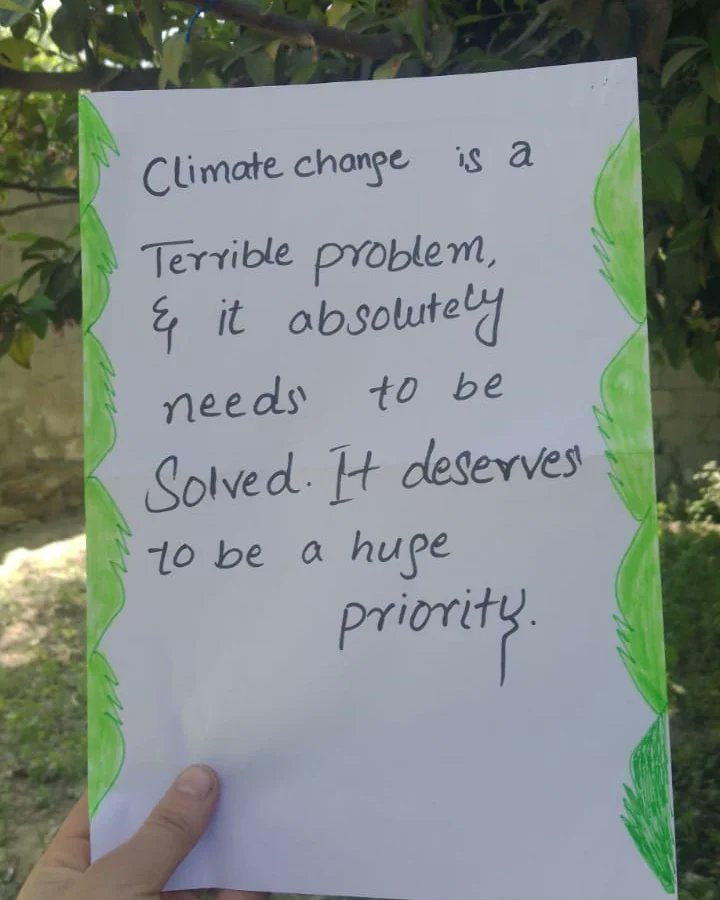 Climate change is a
Terrible problem,
& it absolutely
needs to be
Solved. It deserves
to be a huge
priority.